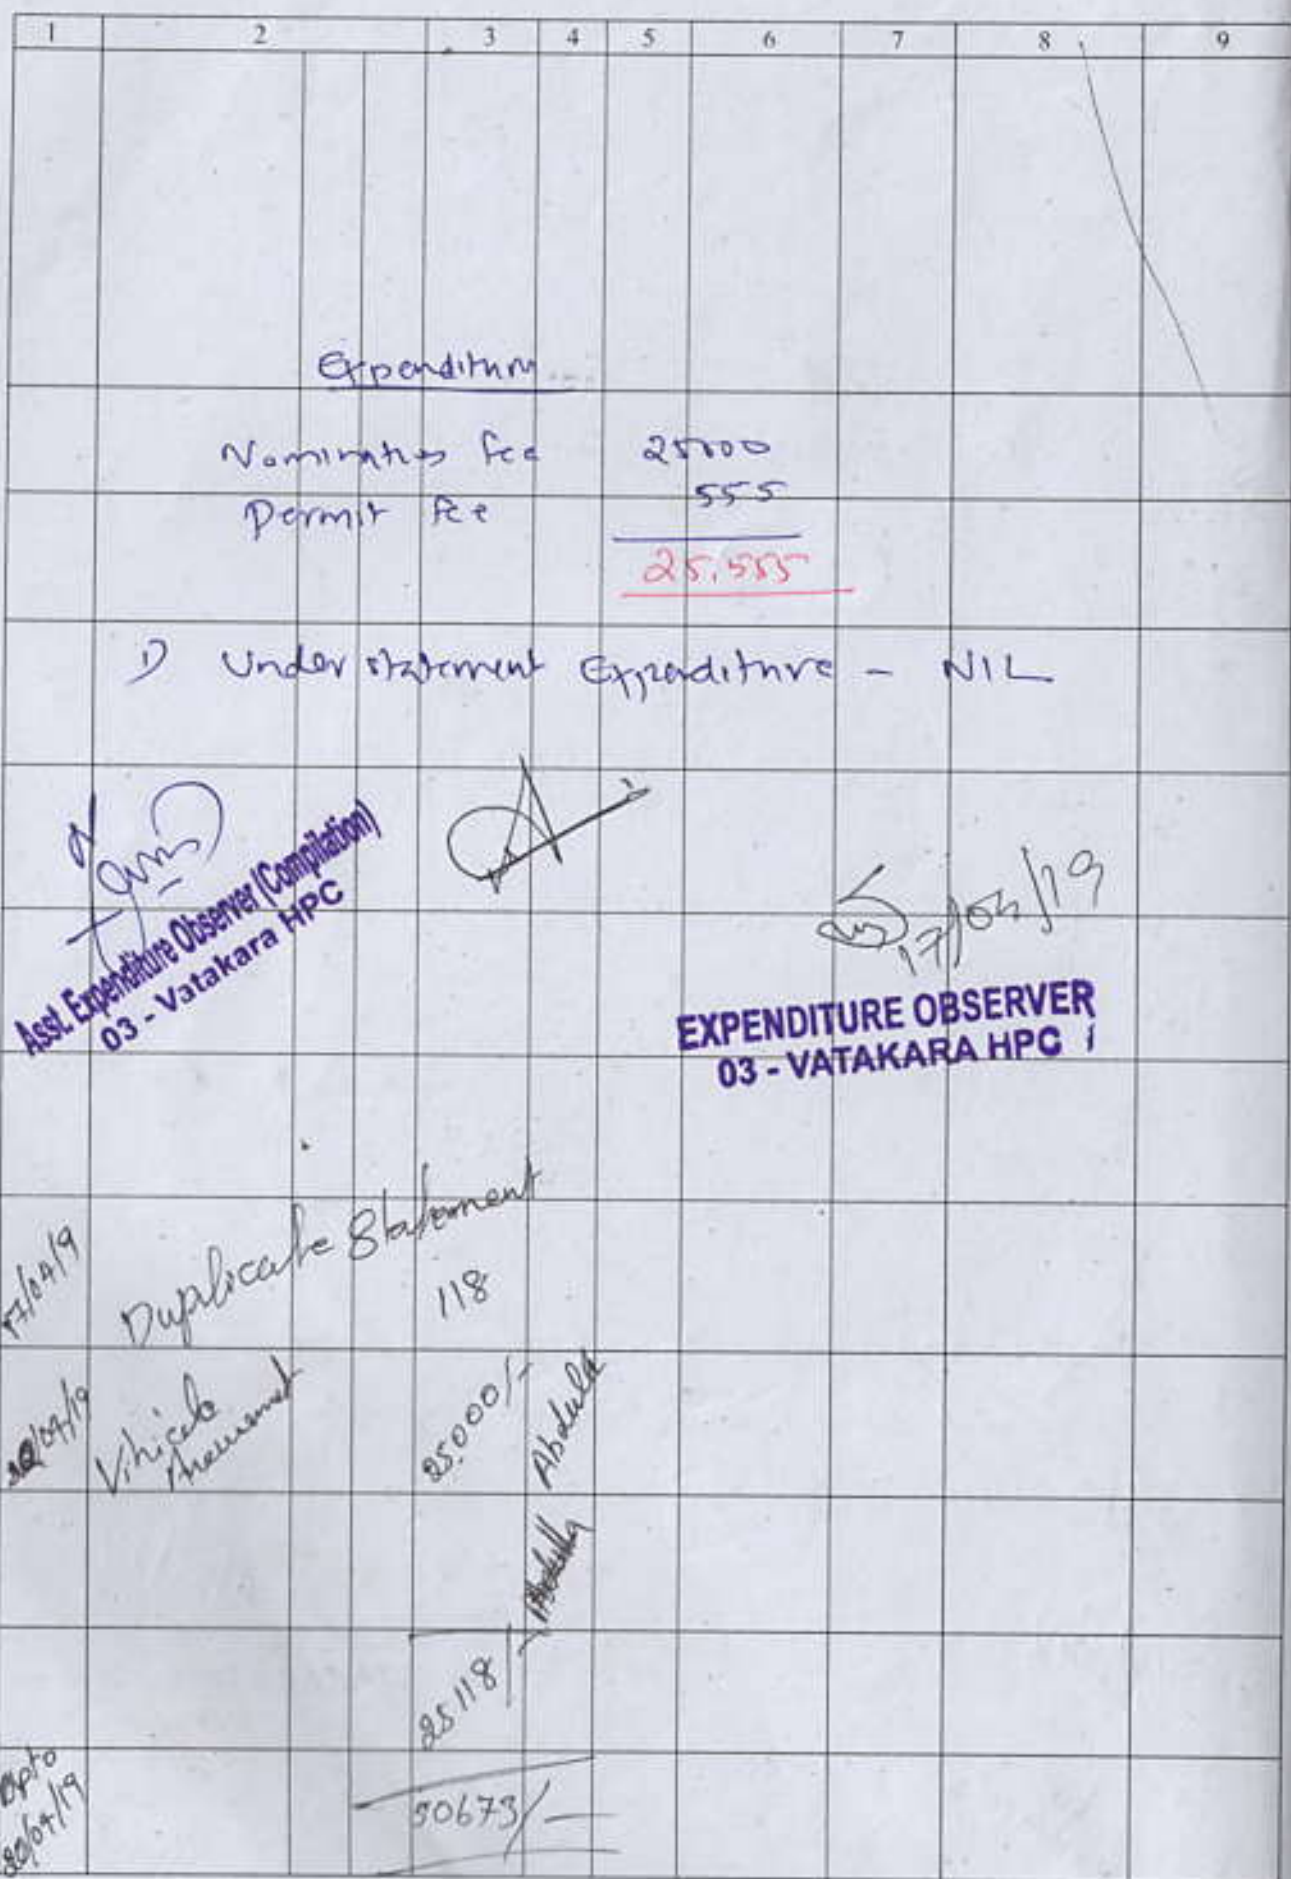 1 2 3 4 5 6 7 8 9
Expenditure
Nomination fee 25000
Permit fee 555
25,555
1) Understatement Expenditure - NIL
Asst. Expenditure Observer (Compilation)
03 - Vatakara HPC
17/04/19
EXPENDITURE OBSERVER
03 - VATAKARA HPC
17/04/19 Duplicate Statement 118
20/04/19 Vihicale 25,000/- Abdulla
Abdulla
25118/-
Upto
20/04/19
50673/-